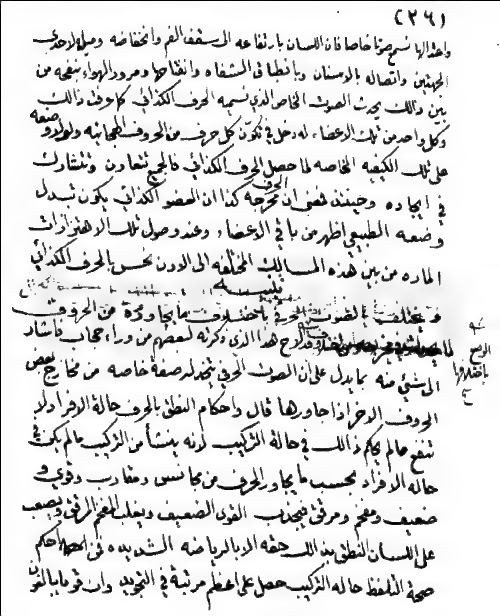 (٢٦١)
واحداثها نسمع صوتا خاصا فان اللسان بارتفاعه الى سقف الفم وانخفاضه وميله لاحدى
الجهتين واتصاله بالاسنان وبانطباق الشفاه وانفتاحها ومرور الهواء بنفحه من
بين ذلك يحدث الصوت الخاص الذي نسميه الحرف الكذائي كما عرفت ذلك
وكل واحد من تلك الاعضاء له دخل في تكون كل حرف من الحروف الهجائيه ولولا وضعه
على تلك الكيفيه الخاصه لما حصل الحرف الكذائي فالجميع تتعاون وتتشارك
في ايجاده وحينئذ فمعنى ان مخرجه الحرف كذا ان العضو الكذائي يكون تبدل
وضعه الطبيعي اظهر من باقي الاعضاء وعند وصول تلك الاهتزازات
الماره من بين هذه المسالك المختلفه الى الاذن نحس بالحرف الكذائي
تنبيه
ويختلف الصوت الحرفي باختلاف ما يجاوره من الحروف
وقد لاح هذا الذي ذكرته لبعضهم من وراء حجاب فاشار
الى شيئ منه بما يدل على ان الصوت الحرفي تتجدد له صفة خاصه من مخارج بعض
الحروف الاخر اذا جاورها قال واحكام النطق بالحرف حالة الافراد لا
تنفع مالم يحكم ذلك في حالة التركيب لانه ينشأ من التركيب مالم يكن في
حاله الافراد بحسب ما يجاور الحرف من مجانس ومقارب وقوي و
ضعيف ومفخم ومرقق فيجذب القوى الضعيف ويغلب المفخم المرقق ويصعب
على اللسان النطق بذلك حقه الا بالرياضه الشديده فمن احكم
صحة التلفظ حاله التركيب حصل على اعظم مرتبة في التجويد وان قوما بالفون